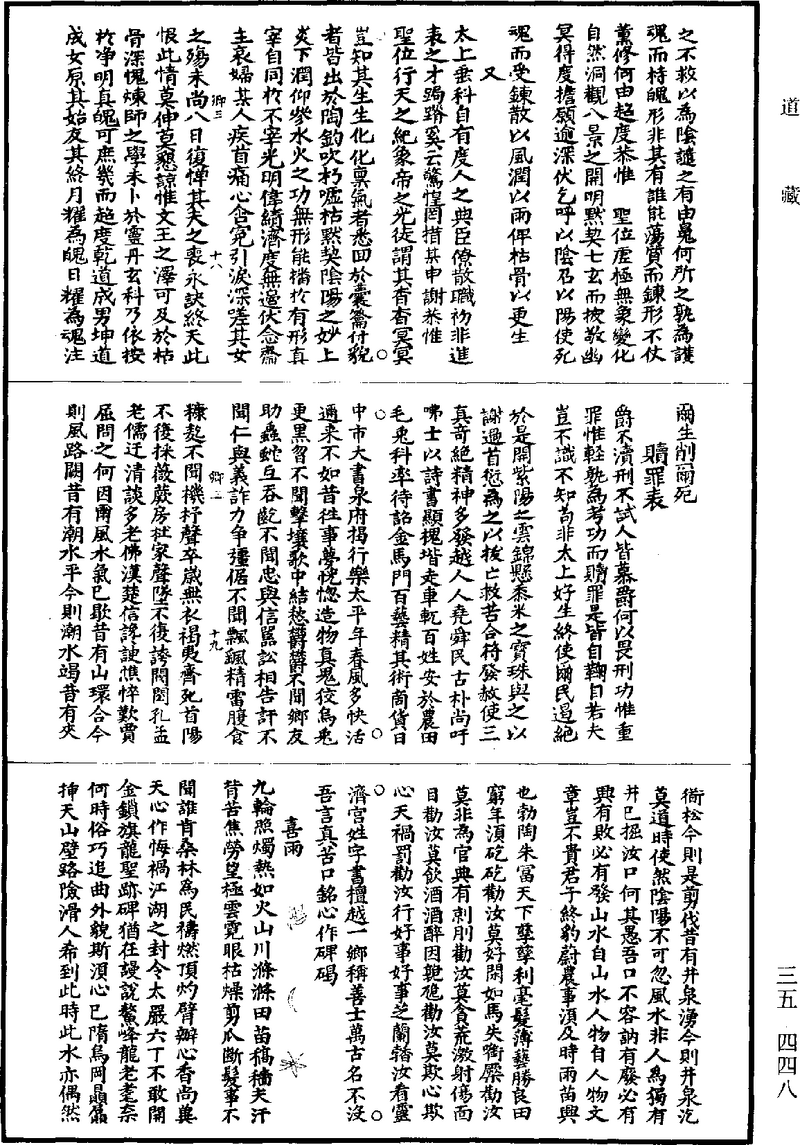 道藏
之不救以為陰譴之有由鬼何所之孰為護
魂而持魄形非其有誰能蕩質而鍊形不仗
薰修何由超度恭惟　聖位虛極無象變化
自然洞觀八景之開明默契七玄而披散幽
冥得度擔願逾深伏乞呼以陰召以陽使死
魂而受鍊散以風潤以雨俾枯骨以更生
又
太上垂科自有度人之典臣僚散職初非進
表之才跼蹐奚云驚惶罔措某申謝恭惟
聖位行天之紀象帝之光徒謂其杳杳冥冥
豈知其生生化化稟氣者悉囬於囊籥付貌
者皆出於陶鈞吹朽噓枯默契陰陽之妙上
炎下潤仰參水火之功無形能搐於有形真
宰自同於不宰光明偉績濟度無邊伏念齋
主哀婦某人疾首痛心含冤引淚深嗟其女
卿三　十八
之殤未尚八日復憚其夫之喪永訣終天此
恨此情莫伸莫懇諒惟文王之澤可及於枯
骨深愧煉師之學未卜於靈丹玄科乃依按
於淨明真魄可庶幾而超度乾道成男坤道
成女原其始友其終月耀為魄日耀為魂注
爾生削爾死
贖罪表
爵不瀆刑不試人皆慕爵何以畏刑功惟重
罪惟輕孰為考功而贖罪是皆自鞠自若夫
豈不識不知苟非太上好生終使爾民遏絕
於是開紫陽之雲錦懸黍米之寶珠與之以
謝過首愆為之以拔亡救苦合符發赦使三
真奇絕精神多發越人人堯舜民古朴尚呼
咈士以詩書顯槐堦走車軏百姓安於農田
毛兎科率待詔金馬門百藝精其術商貨日
中市大書泉府揭行樂太平年春風多快活
邇來不如昔往事夢恍惚造物真鬼狡烏兎
更黑窅不聞擊壤歌中結愁欝欝不聞鄉友
助蟲蛇互吞齕不聞忠與信嚚訟相告訐不
聞仁與義詐力争彊倔不聞飄颻精雷腹食
卿三　十九
糠麧不聞機杼聲卒歲無衣褐夷齊死首陽
不復採薇蕨房杜家聲墜不復誇閥閱孔孟
老儒迂清談多老佛漢楚信讒諛憔悴歎賈
屈問之何因爾風水氣已歇昔有山環合今
則風路闕昔有潮水平今則潮水竭昔有夾
衙松今則是剪伐昔有井泉湧今則井泉汔
莫道時使然陰陽不可忽風水非人為獨有
井已掘汝口何其愚吾口不容訥有廢必有
興有敗必有發山水自山水人物自人物文
章豈不貴君子終豹蔚農事須及時雨苗興
也勃陶朱富天下孳孳利毫髮薄藝勝良田
窮年須矻矻勸汝莫好閑如馬失銜橜勸汝
莫非為官典有刺刖勸汝莫貪荒激射傷面
目勸汝莫飲酒酒醉因臲卼勸汝莫欺心欺
心天禍罰勸汝行好事好事芝蘭馞汝看靈
濟宫姓字書檀越一鄉稱善士萬古名不沒
吾言真苦口銘心作碑碣
喜雨
九輪照燭熱如火山川滌滌田苗槁穡夫汗
背苦焦勞望極雲霓眼枯燥剪爪斷髮事不
聞誰肯桑林為民禱燃頂灼臂辦心香尚冀
天心作悔禍江湖之封令太嚴六丁不敢開
金鎖旗龍聖跡碑猶在謾說鰲峰龍老耄奈
何時俗巧逞曲外貌斯湏心已隋烏岡贔屭
挿天山壁路險滑人希到此時此水亦偶然
三五　四四八